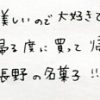 美しいので大好きで
帰る度に買って帰
長野の名菓子!!